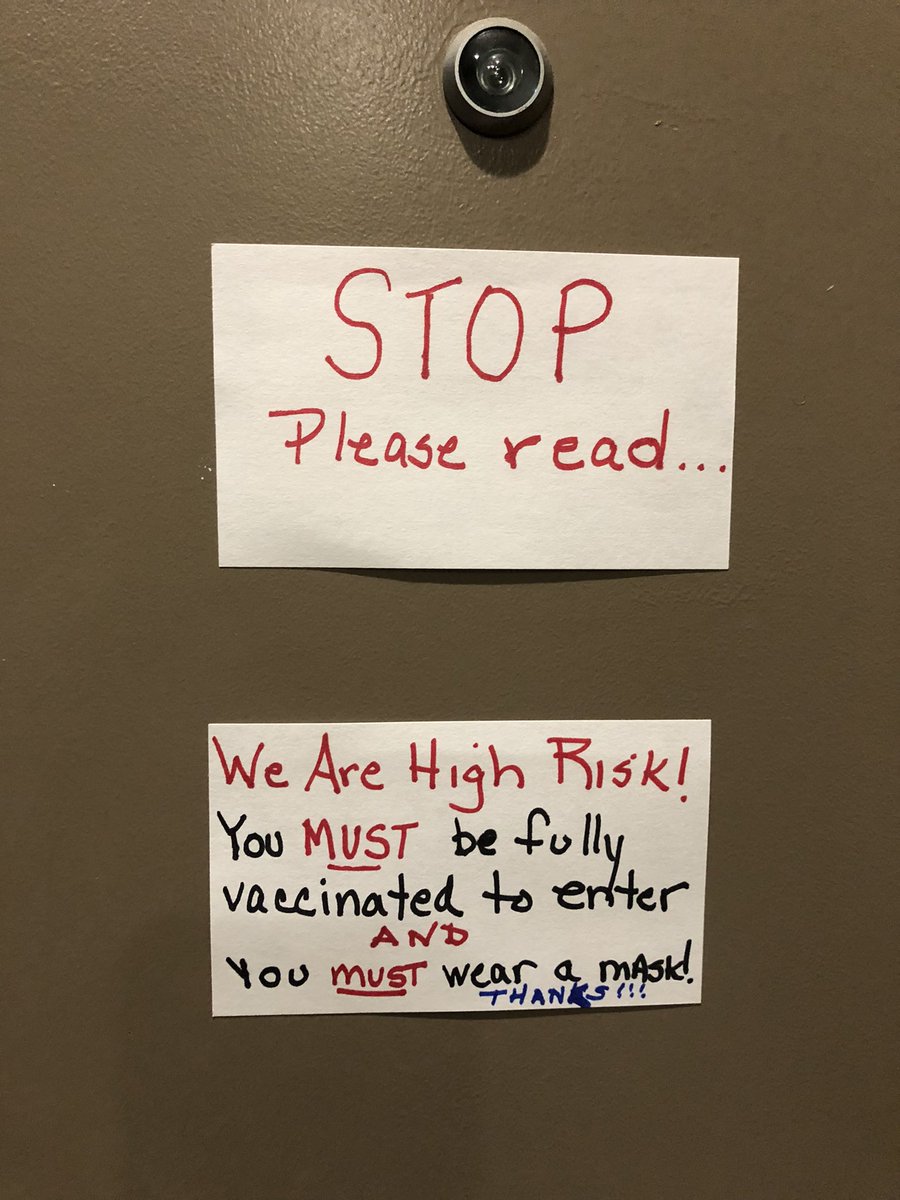 STOP
Please read...
We Are High Risk!
You MUST be fully
vaccinated to enter
AND
You MUST wear a mAsk!
THANKS!!!